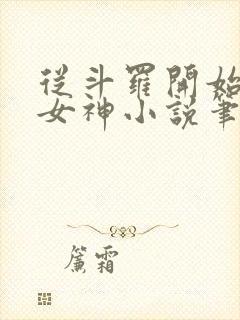 從斗羅開始
女神小説筆
簾霜